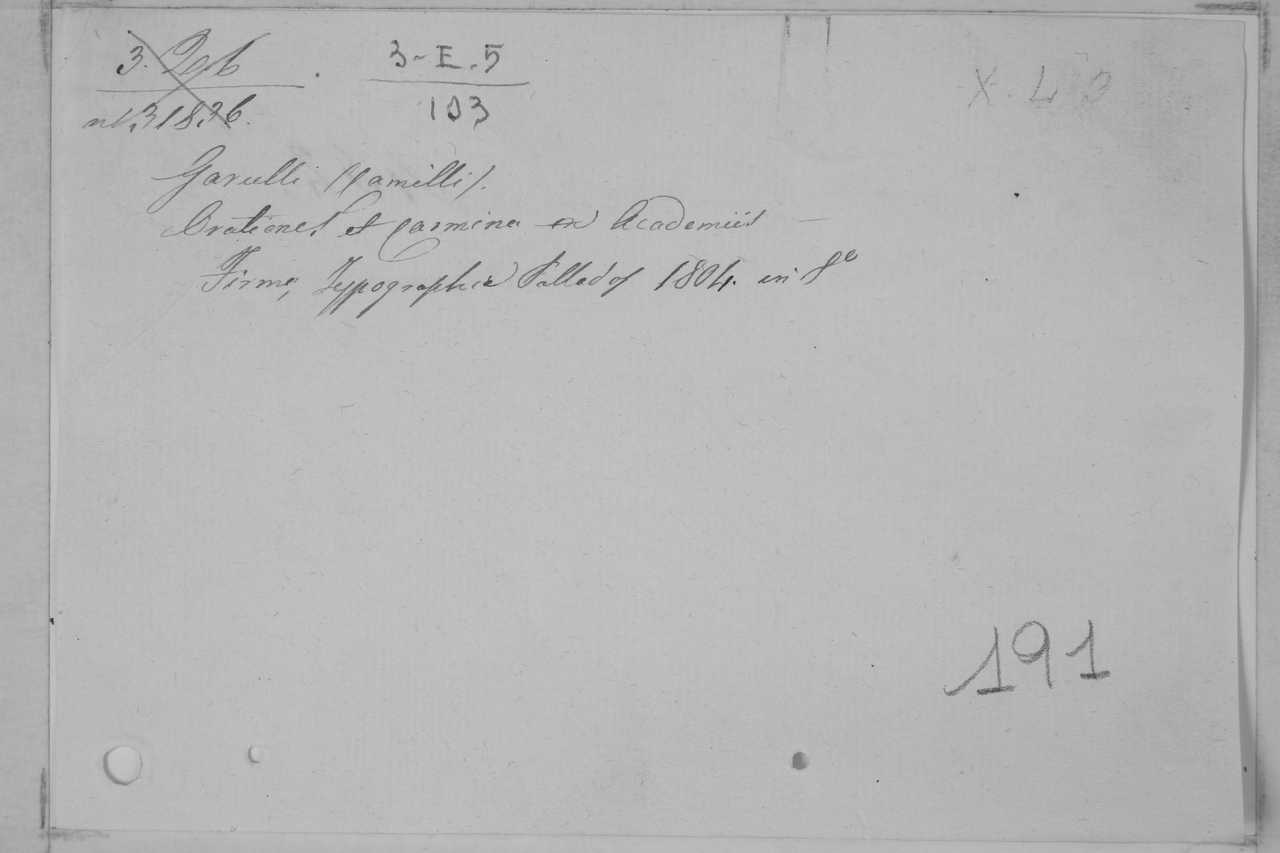 3-E.5
103
X. L
n° 31836.
Garulli (Camilli).
Orationes et Carmina ex Academiis —
Firme, Typographia Pallad. 1804. in 8°
191